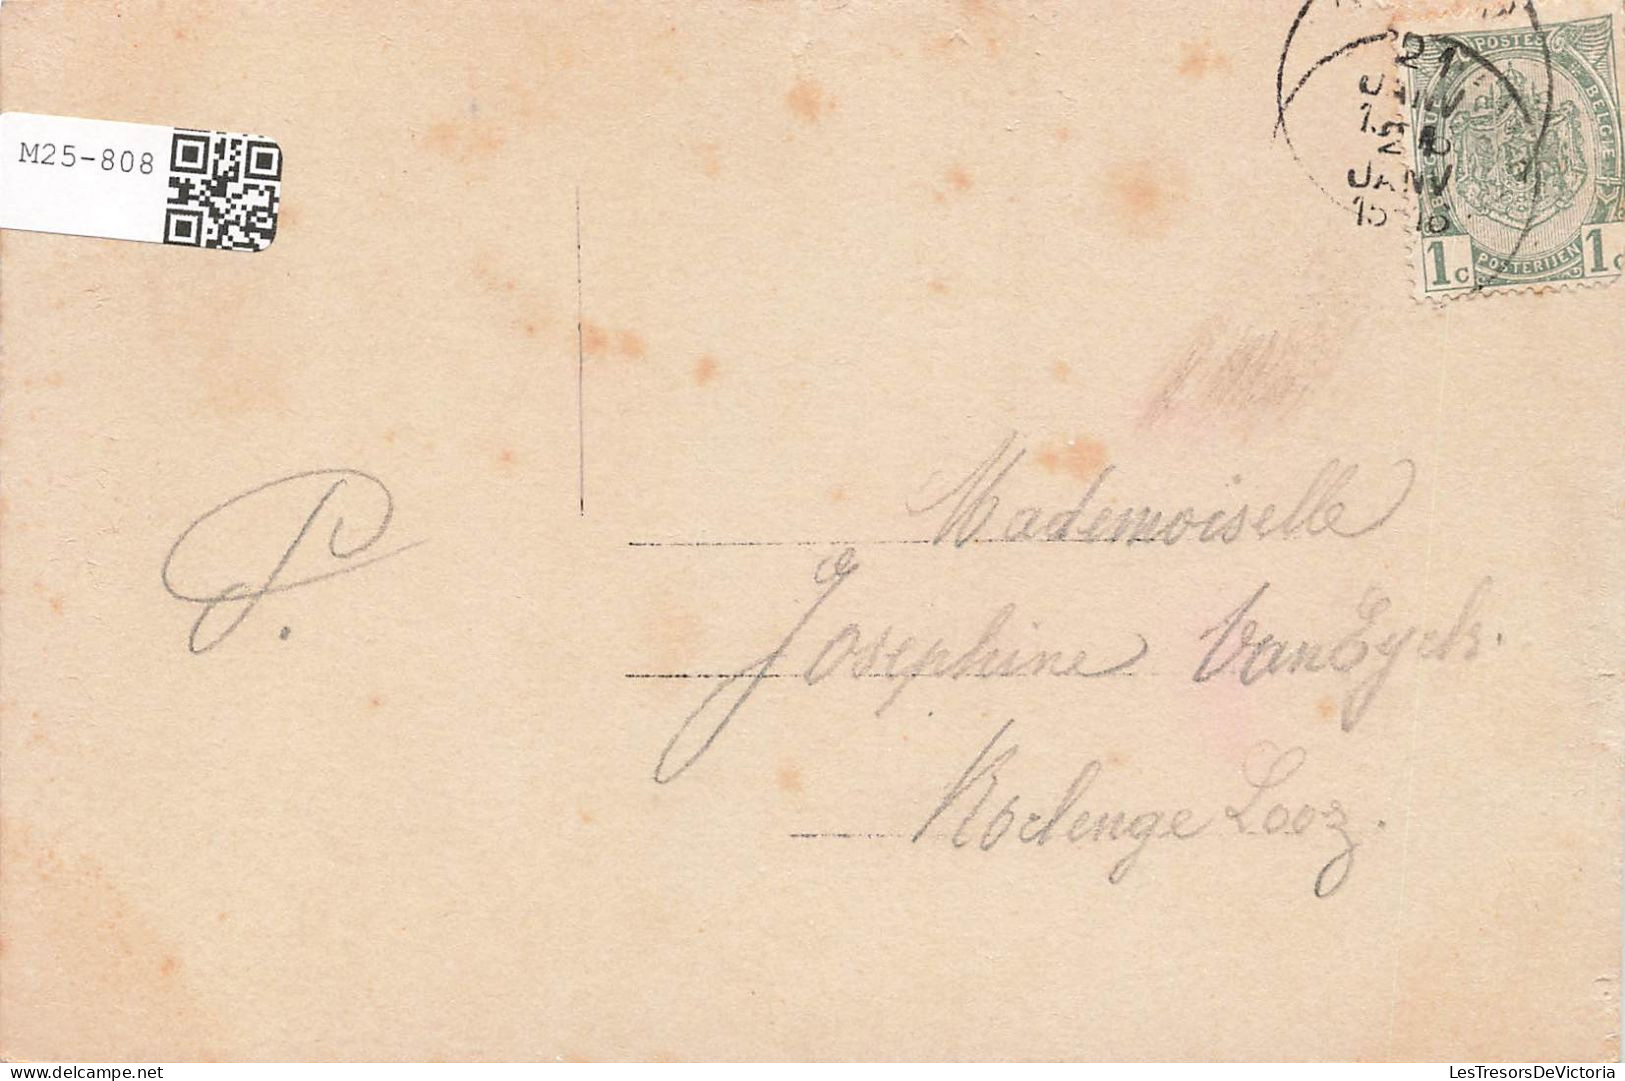 M25-808
21
JANV
JANV
15-16
POSTES
BELGIQUE BELGIE
POSTERIJEN
1c 1c
P.
Mademoiselle
Josephine Van Eyck.
Kerlenge Looz.
LesTresorsDeVictoria